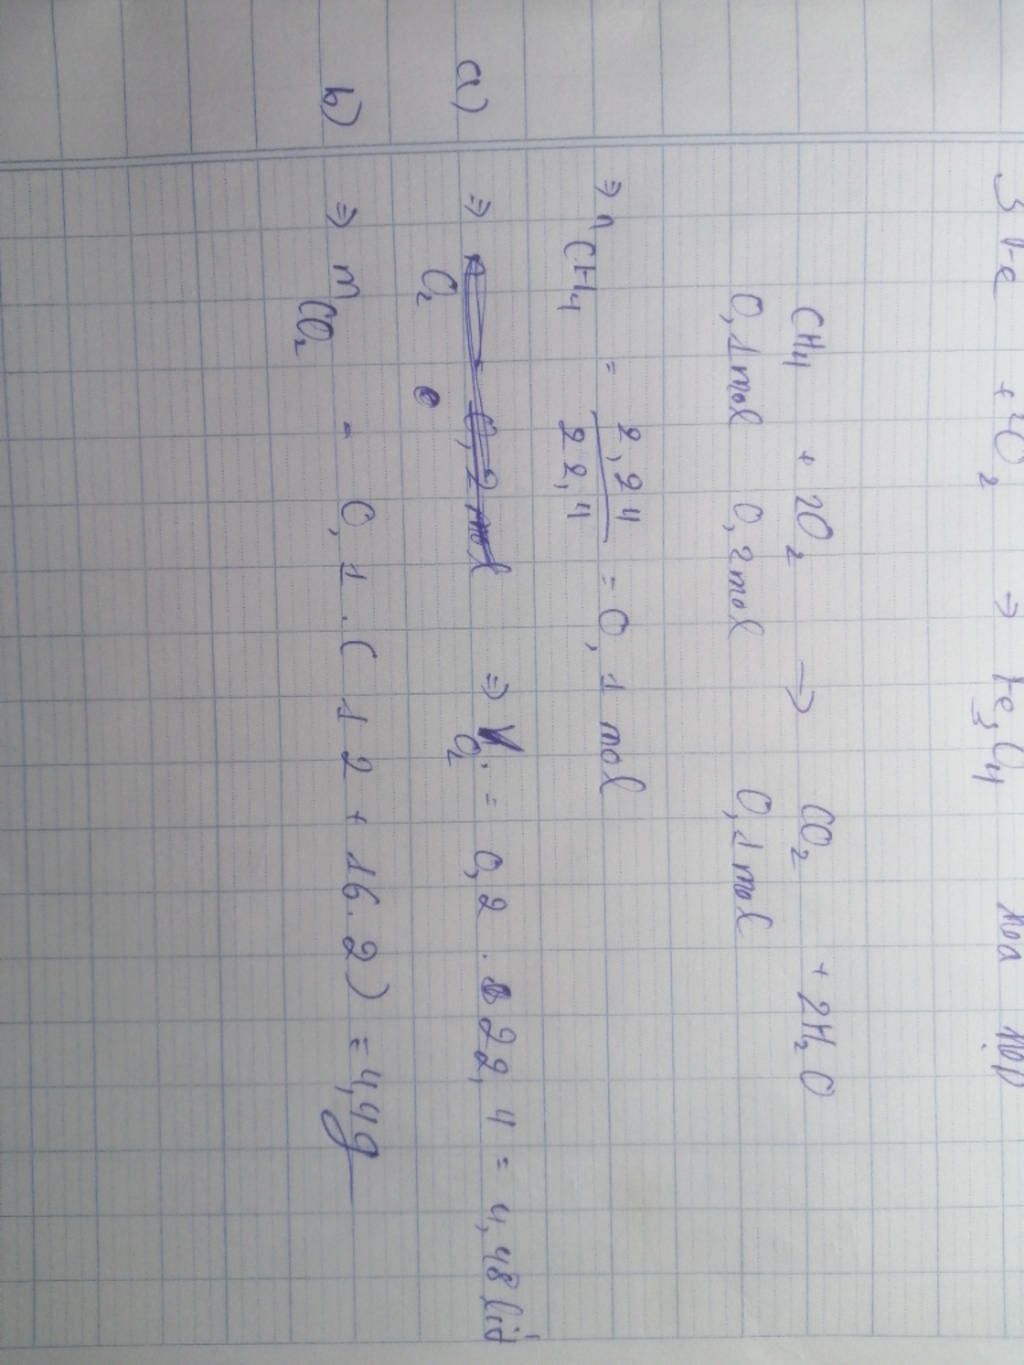 3 Fe + 2O2 → Fe3O4 hóa hợp
CH4 + 2O2 → CO2 + 2H2O
0,1mol 0,2mol 0,1mol
⇒ nCH4 = 2,24 / 22,4 = 0,1 mol
a) ⇒ nO2 = 0,2 mol ⇒ VO2 = 0,2 . 22,4 = 4,48 lít
b) ⇒ mCO2 = 0,1 . ( 12 + 16.2 ) = 4,4g